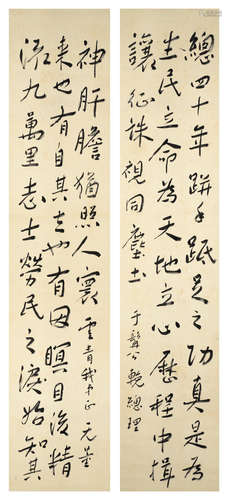 總四十年胼手胝足之功真是為
生民立命為天地立心歷程中揖
讓征誅視同塵土 于髯公輓總理
流九萬里志士勞民之淚始知其
來也有自其去也有因瞑目後精
神肝膽猶照人寰 雲青我兄正 无量